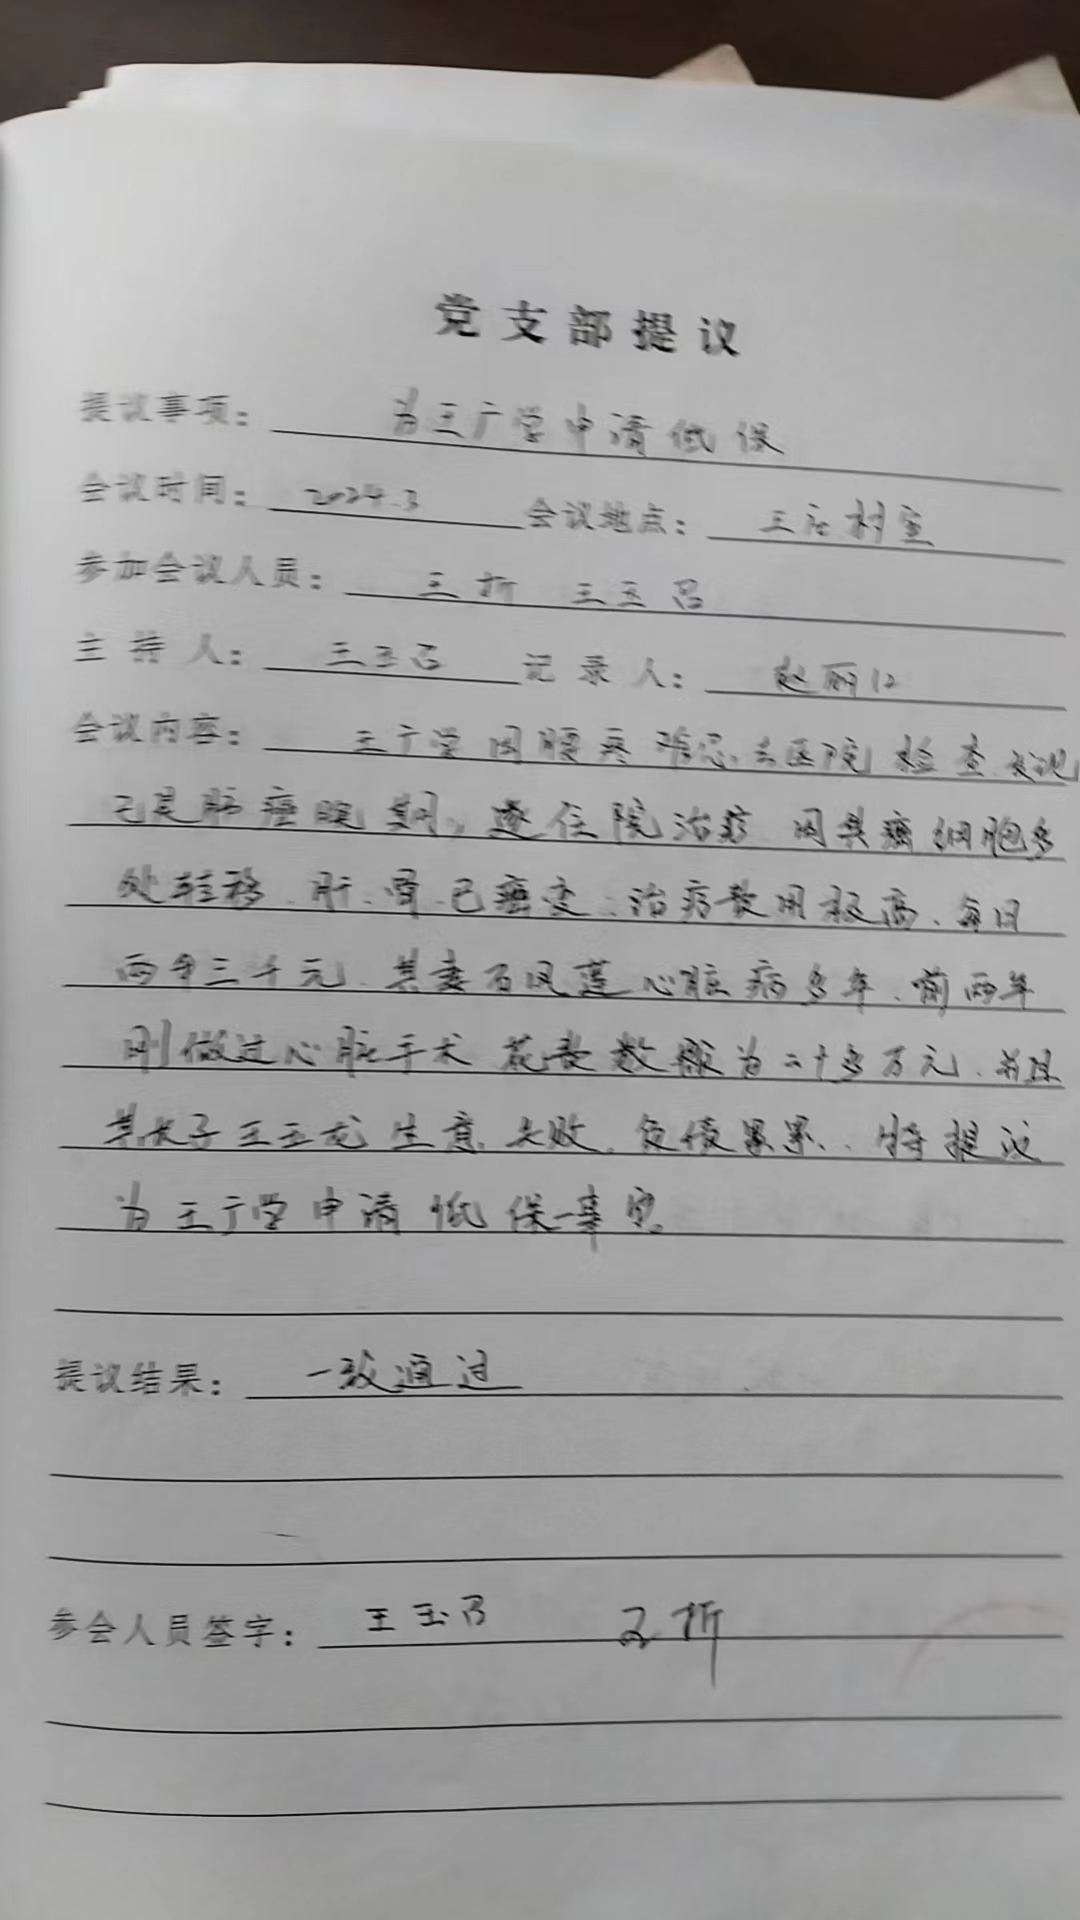 党支部提议
提议事项: 为王广学申请低保
会议时间: 2024.3 会议地点: 王庄村室
参加会议人员: 王折 王玉召
主持人: 王玉召 记录人: 赵丽
会议内容: 王广学因腰疼难忍、去医院检查、发现
已是肺癌晚期,遂住院治疗 因其癌细胞多
处转移、肝、骨、已癌变、治疗费用极高、每日
两三千元、其妻石凤莲心脏病多年、前两年
刚做过心脏手术 花费数额为二十多万元、并且
其长子王玉龙生意失败,负债累累、特提议
为王广学申请低保一事宜
提议结果: 一致通过
参会人员签字: 王玉召 王折